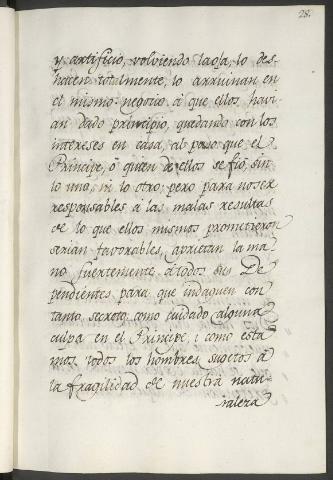 28.
y artificio, volviendo la oja, lo des-
hacen totalmente, lo arruinan en
el mismo negocio à que ellos havi-
an dado principio, quedando con los
intereses en casa, al paso que el
Principe, ò quien de ellos se fiò, sin
lo uno, ni lo otro; pero para no ser
responsables à las malas resultas
de lo que ellos mismos prometieron
serian favorables, aprietan la ma-
no fuertemente à todos sus De
pendientes para que indaguen con
tanto secreto, como cuidado alguna
culpa en el Principe; i como esta
mos todos los hombres sugetos à
la fragilidad de nuestra natu-
raleza